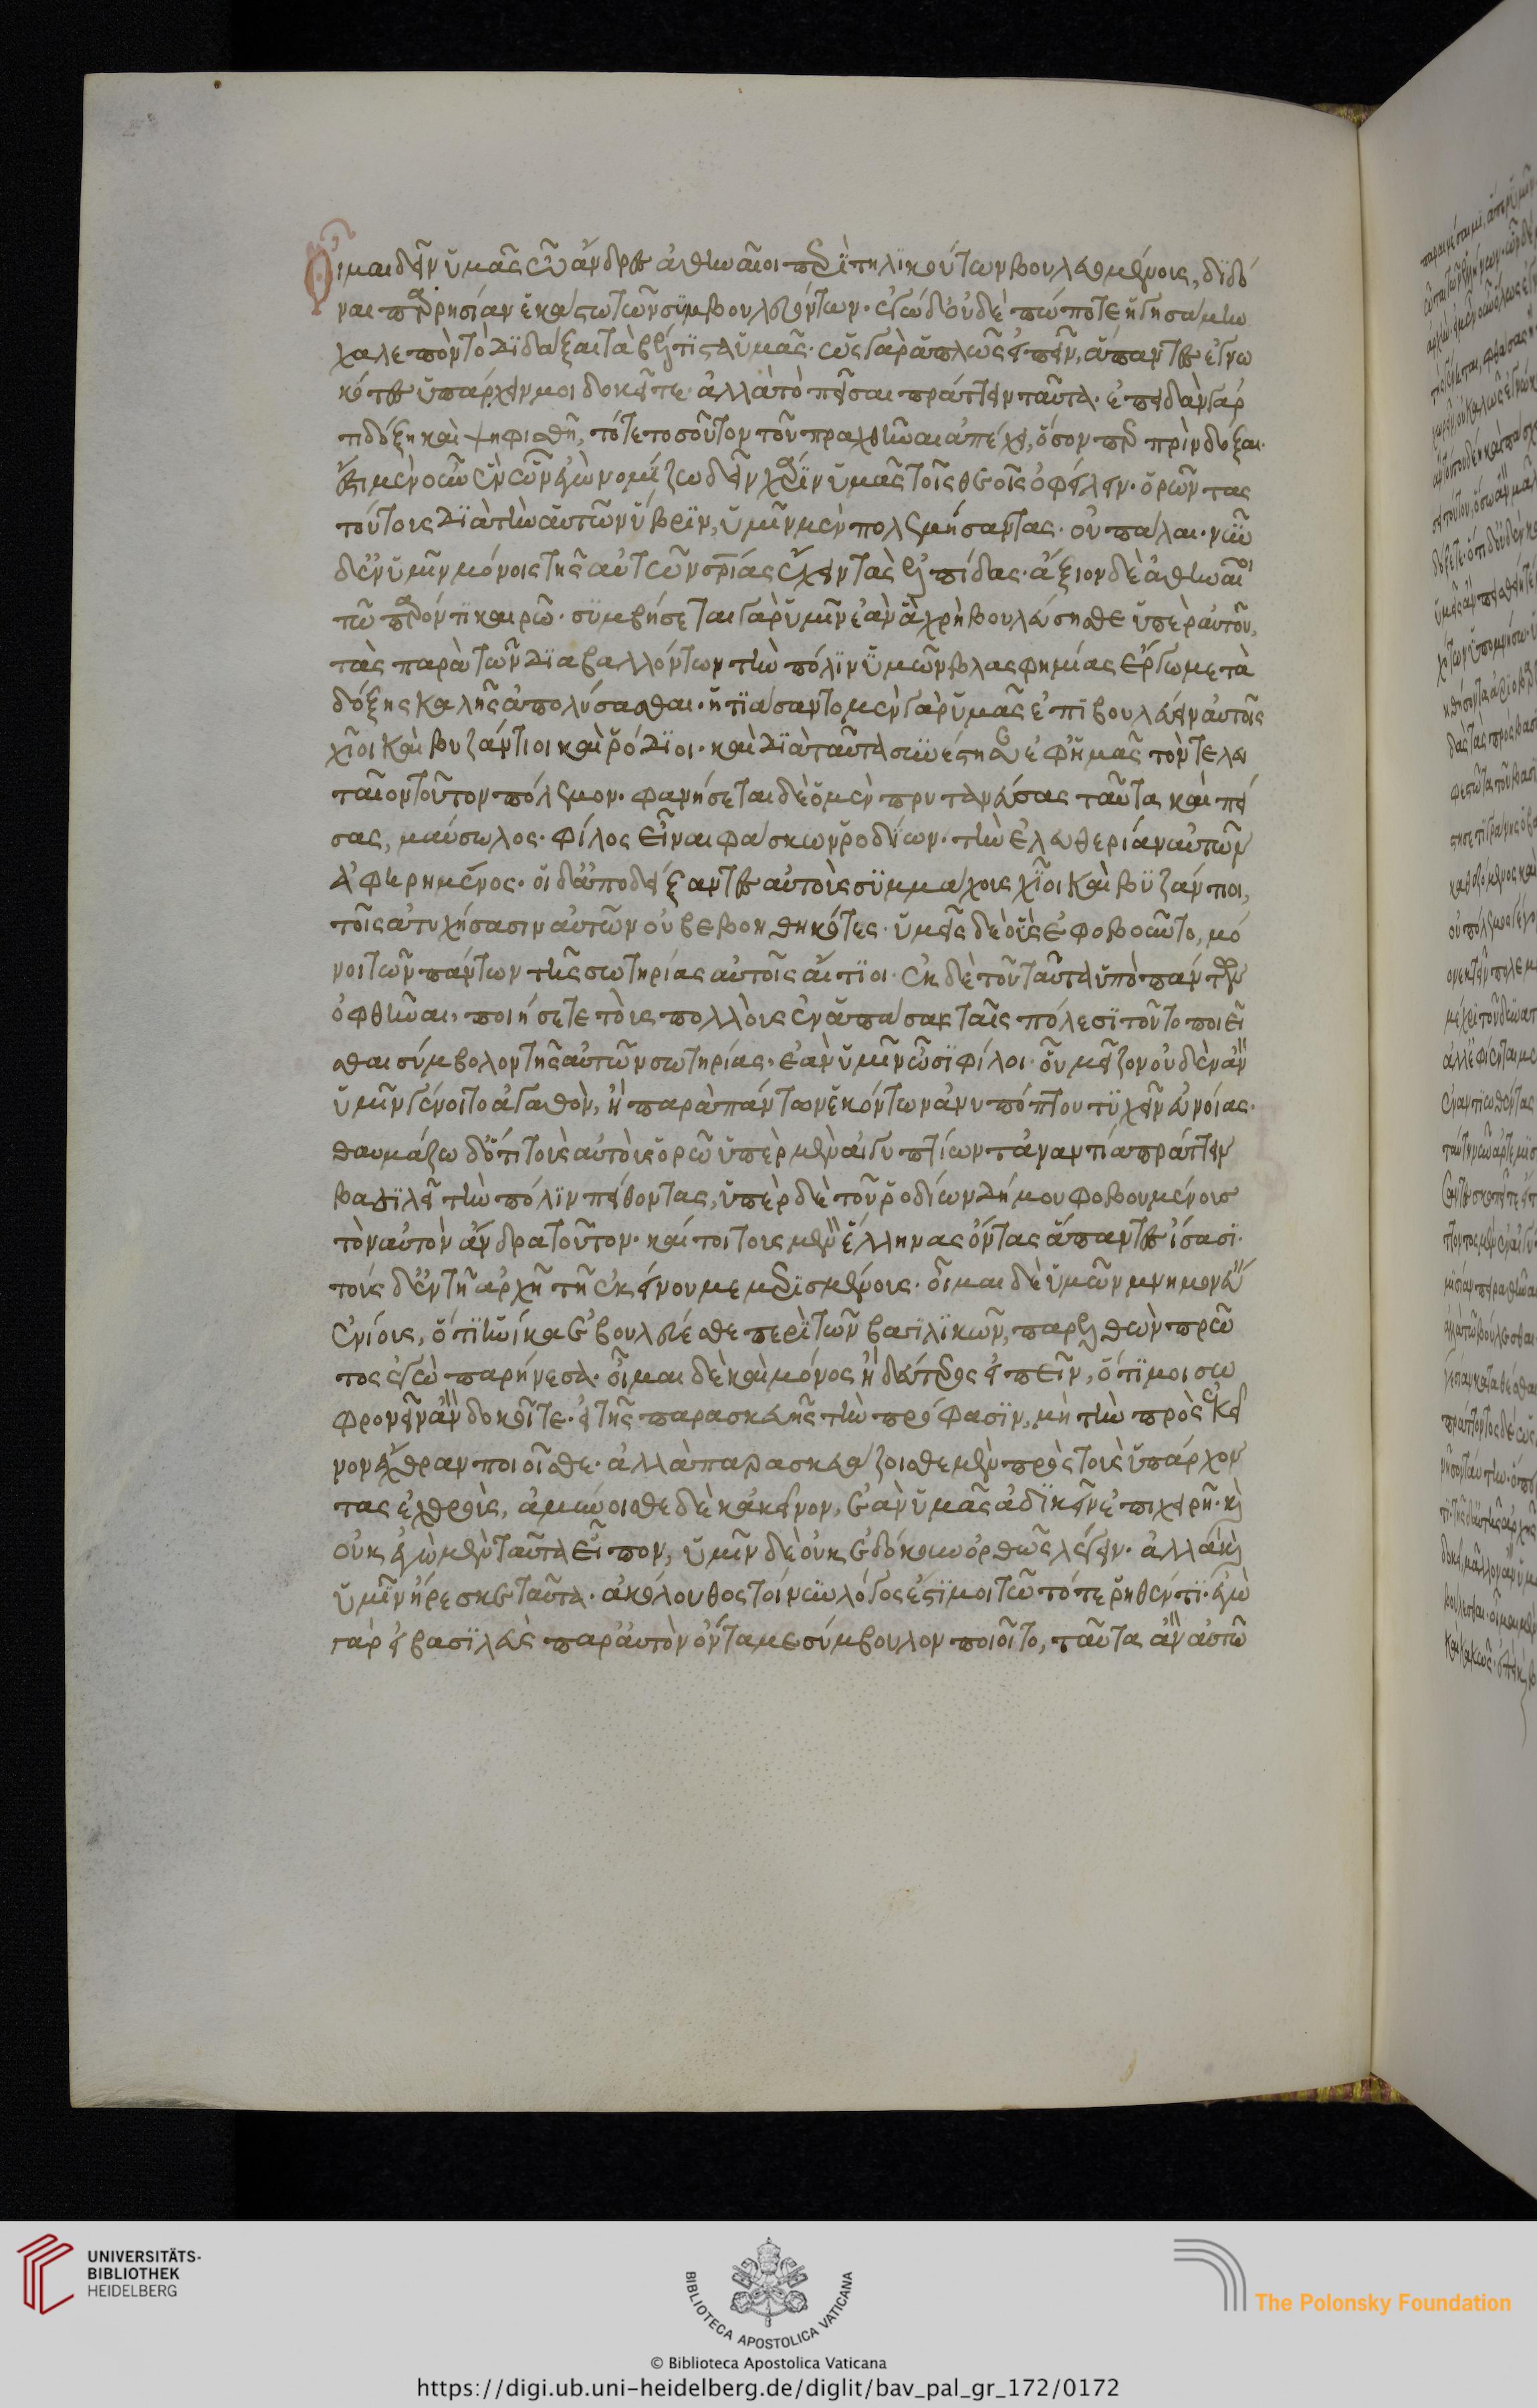 Οἶμαι δεῖν ὑμᾶς ὦ ἄνδρες ἀθηναῖοι περὶ τηλικούτων βουλευομένους, διδό
ναι παρρησίαν ἑκάστω τῶν συμβουλευόντων. ἐγὼ δ' οὐδὲ πώποτε ἡγησάμην
χαλεπὸν τὸ διδάξαι τὰ βέλτιστα ὑμᾶς. ὡς γὰρ ἁπλῶς εἰπεῖν, ἅπαντες ἐγνω
κότες ὑπάρχειν μοι δοκεῖτε. ἀλλὰ τὸ πεῖσαι πράττειν ταῦτα. ἐπειδὰν γάρ
τι δόξη καὶ ψηφισθῆ, τότε τοσοῦτον τοῦ πραχθῆναι ἀπέχει, ὅσον περ πρὶν δόξαι.
ἔστι μὲν οὖν ἓν ὧν ἐγὼ νομίζω δεῖν χάριν ὑμᾶς τοῖς θεοῖς ὀφείλειν. ὁρῶν τας
τούτοις διὰ τὴν αὐτῶν ὕβριν, ὑμῖν μὲν πολεμήσαντας. οὐ πάλαι. νῦν
δ' ἐν ὑμῖν μόνοις τῆς αὐτῶν σωτηρίας ἔχειν τὰς ἐλπίδας. ἄξιον δὲ ἀθηναῖοι
τῶ παρόντι καιρῶ. συμβήσεται γὰρ ὑμῖν ἐὰν ἃ χρὴ βουλεύσησθε ὑπὲρ αὐτοῦ,
τὰς παρὰ τῶν διαβαλλόντων τὴν πόλιν ὑμῶν βλασφημίας ἔργω μετὰ
δόξης καλῆς ἀπολύσασθαι. ἠτιάσαντο μὲν γὰρ ὑμᾶς ἐπιβουλεύειν αὐτοῖς
χῖοι καὶ βυζάντιοι καὶ ῥόδιοι. καὶ διὰ ταῦτα συνέστησαν ἐφ' ἡμᾶς τὸν τελευ
ταῖον τοῦτον πόλεμον. φανήσεται δὲ ὁ μὲν πρυτανεύσας ταῦτα καὶ πεί
σας, μαύσωλος. φίλος εἶναι φάσκων ῥοδίων. τὴν ἐλευθερίαν αὐτῶν
ἀφηρημένος. οἱ δ' ἀποδείξαντες αὐτοὺς συμμάχους χῖοι καὶ βυζάντιοι,
τοῖς ἀτυχήσασιν αὐτῶν οὐ βεβοηθηκότες. ὑμεῖς δὲ οὓς ἐφοβοῦντο, μό
νοι τῶν πάντων τῆς σωτηρίας αὐτοῖς αἴτιοι. ἐκ δὲ τοῦ ταῦτα ὑπὸ πάντων
ὀφθῆναι, ποιήσετε τοὺς πολλοὺς ἐν ἁπάσαις ταῖς πόλεσι τοῦτο ποιεῖ
σθαι σύμβολον τῆς αὐτῶν σωτηρίας. ἐὰν ὑμῖν ὦσι φίλοι. οὗ μεῖζον οὐδὲν ἂν
ὑμῖν γένοιτο ἀγαθὸν, ἢ παρὰ πάντων ἑκόντων ἀνυπόπτου τυχεῖν εὐνοίας.
θαυμάζω δ' ὅτι τοὺς αὐτοὺς ὁρῶ ὑπὲρ μὲν αἰγυπτίων τἀναντία πράττειν
βασιλεῖ τὴν πόλιν πείθοντας, ὑπὲρ δὲ τοῦ ῥοδίων δήμου φοβουμένους
τὸν αὐτὸν ἄνδρα τοῦτον. καίτοι τοὺς μὲν ἕλληνας ὄντας ἅπαντες ἴσασι.
τοὺς δ' ἐν τῆ ἀρχῆ τῆ ἐκείνου μεμερισμένους. οἶμαι δὲ ὑμῶν μνημονεύειν
ἐνίους, ὅτι ἡνίκα ἐβουλεύεσθε περὶ τῶν βασιλικῶν, παρελθὼν πρῶ
τος ἐγὼ παρήνεσα. οἶμαι δὲ καὶ μόνος ἢ δεύτερος εἰπεῖν, ὅτι μοι σω
φρονεῖν ἂν δοκοῖτε. εἰ τῆς παρασκευῆς τὴν πρόφασιν, μὴ τὴν πρὸς ἐκεῖ
νον ἔχθραν ποιοῖσθε. ἀλλὰ παρασκευάζοισθε μὲν πρὸς τοὺς ὑπάρχον
τας ἐχθροὺς, ἀμύνοισθε δὲ κἀκεῖνον, ἐὰν ὑμᾶς ἀδικεῖν ἐπιχειρῆ. καὶ
οὐκ ἐγὼ μὲν ταῦτα εἶπον, ὑμῖν δὲ οὐκ ἐδόκουν ὀρθῶς λέγειν. ἀλλὰ καὶ
ὑμῖν ἤρεσκε ταῦτα. ἀκόλουθος τοίνυν λόγος ἐστί μοι τῶ τότε ῥηθέντι. ἐγὼ
γὰρ εἰ βασιλεὺς παρ' αὐτὸν ὄντα με σύμβουλον ποιοῖτο, ταῦτα ἂν αὐτῶ
UNIVERSITÄTS-
BIBLIOTHEK
HEIDELBERG
BIBLIOTECA APOSTOLICA VATICANA
The Polonsky Foundation
© Biblioteca Apostolica Vaticana
https://digi.ub.uni-heidelberg.de/diglit/bav_pal_gr_172/0172